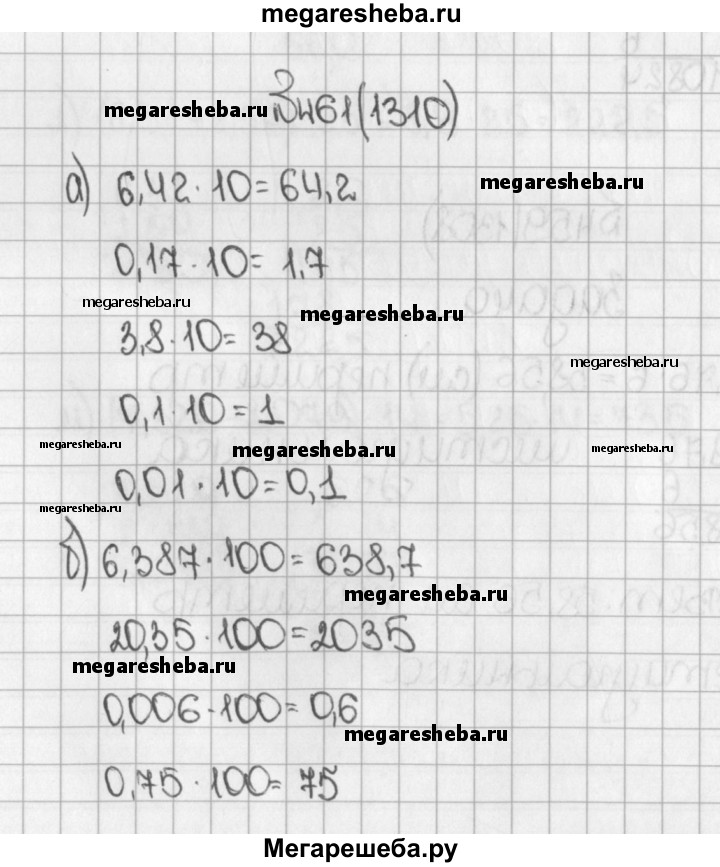 megaresheba.ru
megaresheba.ru №461(1310)
а) 6,42·10=64,2 megaresheba.ru
0,17·10=1,7
megaresheba.ru megaresheba.ru
3,8·10=38
megaresheba.ru
0,1·10=1
megaresheba.ru megaresheba.ru megaresheba.ru
0,01·10=0,1
megaresheba.ru
б) 6,387·100=638,7
megaresheba.ru
20,35·100=2035
megaresheba.ru
0,006·100=0,6
megaresheba.ru
0,75·100=75
Мегарешеба.ру